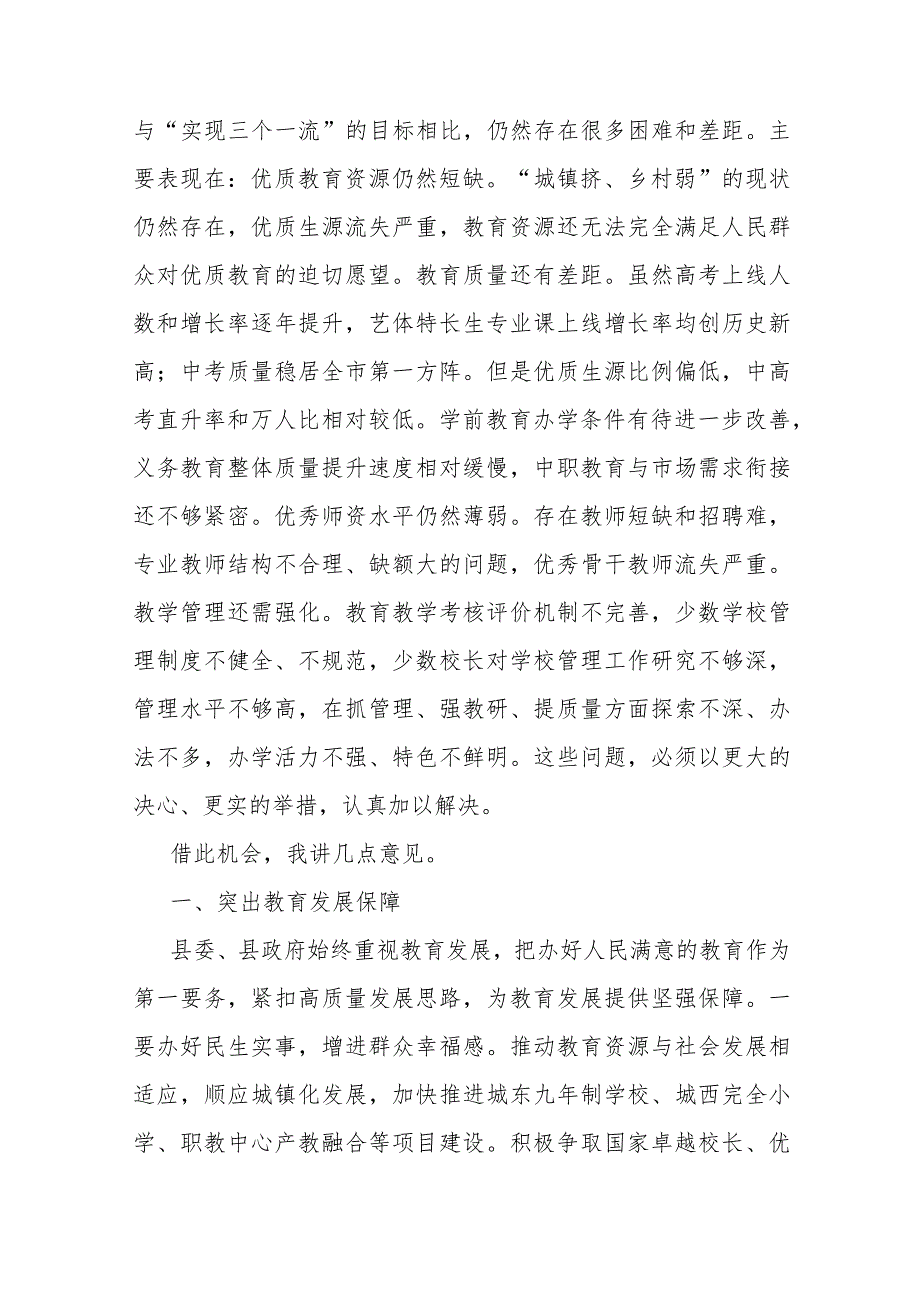 与“实现三个一流”的目标相比，仍然存在很多困难和差距。主
要表现在：优质教育资源仍然短缺。“城镇挤、乡村弱”的现状
仍然存在，优质生源流失严重，教育资源还无法完全满足人民群
众对优质教育的迫切愿望。教育质量还有差距。虽然高考上线人
数和增长率逐年提升，艺体特长生专业课上线增长率均创历史新
高；中考质量稳居全市第一方阵。但是优质生源比例偏低，中高
考直升率和万人比相对较低。学前教育办学条件有待进一步改善，
义务教育整体质量提升速度相对缓慢，中职教育与市场需求衔接
还不够紧密。优秀师资水平仍然薄弱。存在教师短缺和招聘难，
专业教师结构不合理、缺额大的问题，优秀骨干教师流失严重。
教学管理还需强化。教育教学考核评价机制不完善，少数学校管
理制度不健全、不规范，少数校长对学校管理工作研究不够深，
管理水平不够高，在抓管理、强教研、提质量方面探索不深、办
法不多，办学活力不强、特色不鲜明。这些问题，必须以更大的
决心、更实的举措，认真加以解决。
借此机会，我讲几点意见。
一、突出教育发展保障
县委、县政府始终重视教育发展，把办好人民满意的教育作为
第一要务，紧扣高质量发展思路，为教育发展提供坚强保障。一
要办好民生实事，增进群众幸福感。推动教育资源与社会发展相
适应，顺应城镇化发展，加快推进城东九年制学校、城西完全小
学、职教中心产教融合等项目建设。积极争取国家卓越校长、优